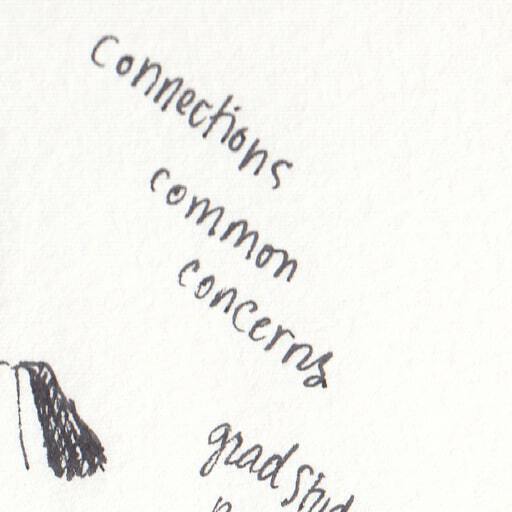 Connections
common
concerns
grad stud